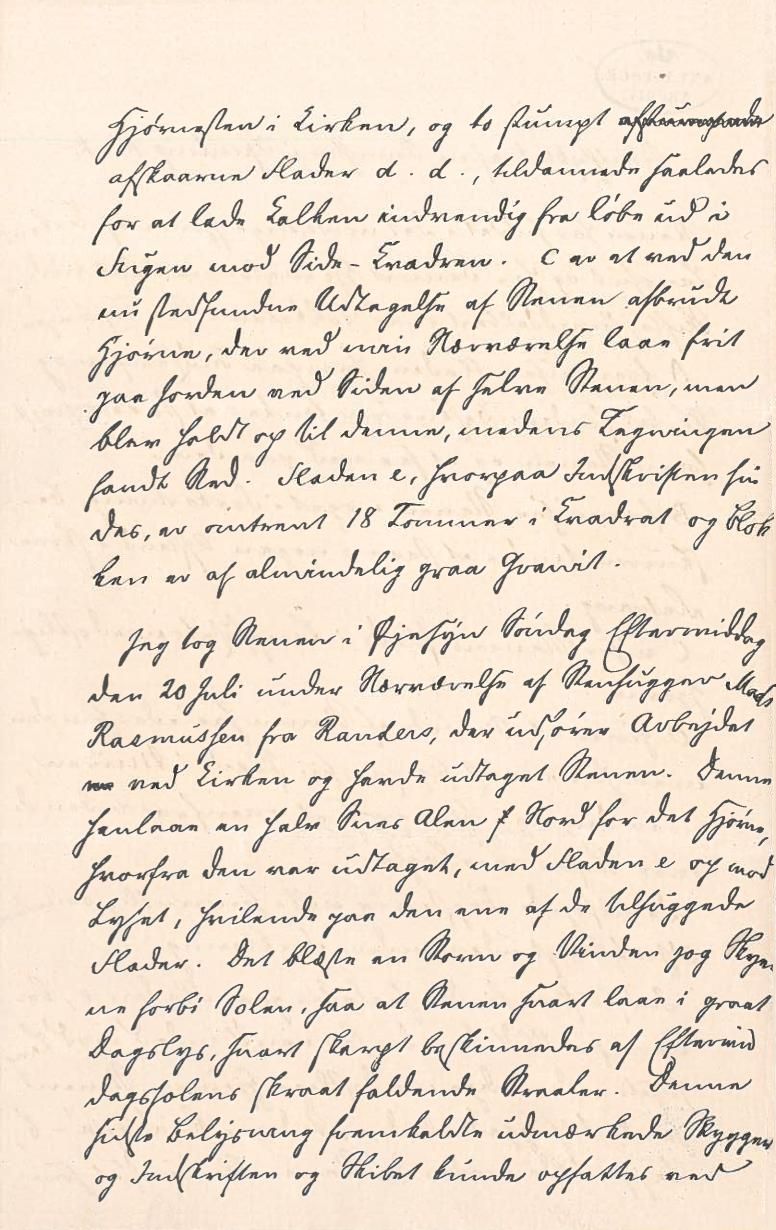 Hjørnesten i Kirken, og to stumpt
afskaarne Flader d. d., tildannede saaledes
for at lade Kalken indvendig fra løbe ud i
Fugen mod Side-Kvadren. C er et ved den
nu stedfundne Udtagelse af Stenen afbrudt
Hjørne, der ved min Nærværelse laae frit
paa Jorden ved Siden af selve Stenen, men
blev holdt op til denne, medens Tegningen
fandt Sted. Fladen e, hvorpaa Indskriften fin
des, er omtrent 18 Tommer i Kvadrat og Blok
ken er af almindelig graa Granit.
Jeg tog Stenen i Øjesyn Søndag Eftermiddag
den 20 Juli under Nærværelse af Stenhugger Mads
Rasmussen fra Randers, der udfører Arbejdet
ved Kirken og havde udtaget Stenen. Denne
henlaae en halv Snes Alen i Nord for det Hjørne,
hvorfra den var udtaget, med Fladen e op mod
Lyset, hvilende paa den ene af de tilhuggede
Flader. Det blæste en Storm og Vinden jog Skyer
ne forbi Solen, saa at Stenen snart laae i graat
Dagslys, snart skarpt beskinnedes af Eftermid
dagssolens skraat faldende Straaler. Denne
sidste Belysning fremkaldte udmærkede Skygger
og Indskriften og Skibet kunde opfattes ved